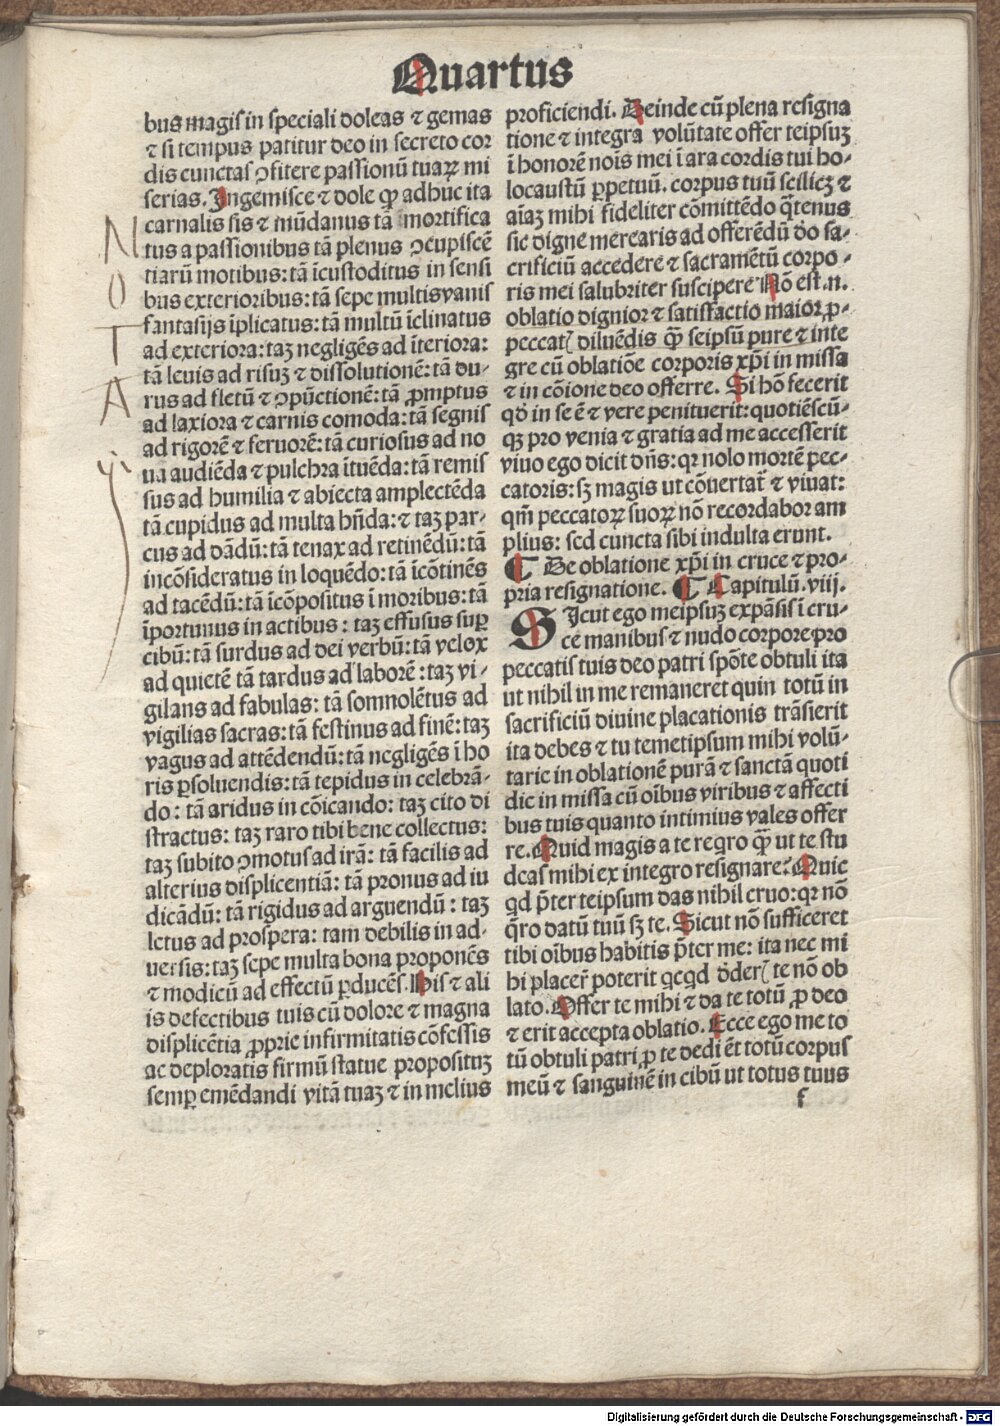 Quartus
bus magis in speciali doleas ⁊ gemas
⁊ si tempus patitur deo in secreto cor
dis cunctas ꝯfitere passionū tuaꝝ mi
serias. Ingemisce ⁊ dole ꝙ adhuc ita
carnalis sis ⁊ mūdanus tā īmortifica
tus a passionibus tā plenus ꝯcupiscē
tiarū motibus: tā īcustoditus in sensi
bus exterioribus: tā sepe multis vanis
fantasijs īplicatus: tā multū īclinatus
ad exteriora: taꝫ negligēs ad īteriora:
tā leuis ad risuꝫ ⁊ dissolutionē: tā du-
rus ad fletū ⁊ ꝯpūctionē: tā ꝓmptus
ad laxiora ⁊ carnis comoda: tā segnis
ad rigorē ⁊ feruorē: tā curiosus ad no
ua audiēda ⁊ pulchra ītuēda: tā remis
sus ad humilia ⁊ abiecta amplectēda
tā cupidus ad multa hñda: ⁊ taꝫ par-
cus ad dādū: tā tenax ad retinēdū: tā
incōsideratus in loquēdo: tā īcōtinēs
ad tacēdū: tā īcōpositus ī moribus: tā
īportunus in actibus: taꝫ effusus suꝑ
cibū: tā surdus ad dei verbū: tā velox
ad quietē tā tardus ad laborē: taꝫ vi-
gilans ad fabulas: tā somnolētus ad
vigilias sacras: tā festinus ad finē: taꝫ
vagus ad attēdendū: tā negligēs ī ho
ris ꝑsoluendis: tā tepidus in celebrā-
do: tā aridus in cōicando: taꝫ cito di
stractus: taꝫ raro tibi bene collectus:
taꝫ subito ꝯmotus ad irā: tā facilis ad
alterius displicentiā: tā pronus ad iu
dicādū: tā rigidus ad arguendū: taꝫ
letus ad prospera: tam debilis in ad-
uersis: taꝫ sepe multa bona proponēs
⁊ modicū ad effectū ꝑducēs. His ⁊ ali
is defectibus tuis cū dolore ⁊ magna
displicētia ꝓprie infirmitatis cōfessis
ac deploratis firmū statue propositūꝫ
semꝑ emēdandi vitā tuaꝫ ⁊ in melius
proficiendi. Deinde cū plena resigna
tione ⁊ integra volūtate offer teipsuꝫ
ī honorē nois mei ī ara cordis tui ho-
locaustū ꝑpetuū. corpus tuū scilicꝫ ⁊
aīaꝫ mihi fideliter cōmittēdo q̄tenus
sic digne merearis ad offerēdū deo sa-
crificiū accedere ⁊ sacramētū corpo-
ris mei salubriter suscipere Nō est .n.
oblatio dignior ⁊ satisfactio maior ꝓ-
peccat̄ diluēdis ꝙ̄ seipsū pure ⁊ inte
gre cū oblatiōe corporis xp̄i in missa
⁊ in cōione deo offerre. Si hō fecerit
qd̄ in se ē ⁊ vere penituerit: quotiēscū-
qꝫ pro venia ⁊ gratia ad me accesserit
viuo ego dicit dñs: qr nolo mortē pec-
catoris: sꝫ magis ut cōuertat̄ ⁊ viuat:
qm̄ peccatoꝝ suoꝝ nō recordabor am
plius: sed cuncta sibi indulta erunt.
¶ De oblatione xp̄i in cruce ⁊ pro-
pria resignatione. ¶ Capitulū .viij.
SIcut ego meipsuꝫ expāsis ī cru-
ce manibus ⁊ nudo corpore pro
peccatis tuis deo patri spōte obtuli ita
ut nihil in me remaneret quin totū in
sacrificiū diuine placationis trāsierit
ita debes ⁊ tu temetipsum mihi volū-
tarie in oblationē purā ⁊ sanctā quoti
die in missa cū oībus viribus ⁊ affecti
bus tuis quanto intimius vales offer
re. Quid magis a te reqro ꝙ̄ ut te stu
deas mihi ex integro resignare? Quic
qd p̄ter teipsum das nihil curo: qr nō
q̄ro datū tuū sꝫ te. Sicut nō sufficeret
tibi oībus habitis p̄ter me: ita nec mi
hi placer̄ poterit qcqd deder̄ te nō ob
lato. Offer te mihi ⁊ da te totū ꝓ deo
⁊ erit accepta oblatio. Ecce ego me to
tū obtuli patri ꝓ te dedi ēt totū corpus
meū ⁊ sanguinē in cibū ut totus tuus
f
N
O
T
A
Digitalisierung gefördert durch die Deutsche Forschungsgemeinschaft - DFG